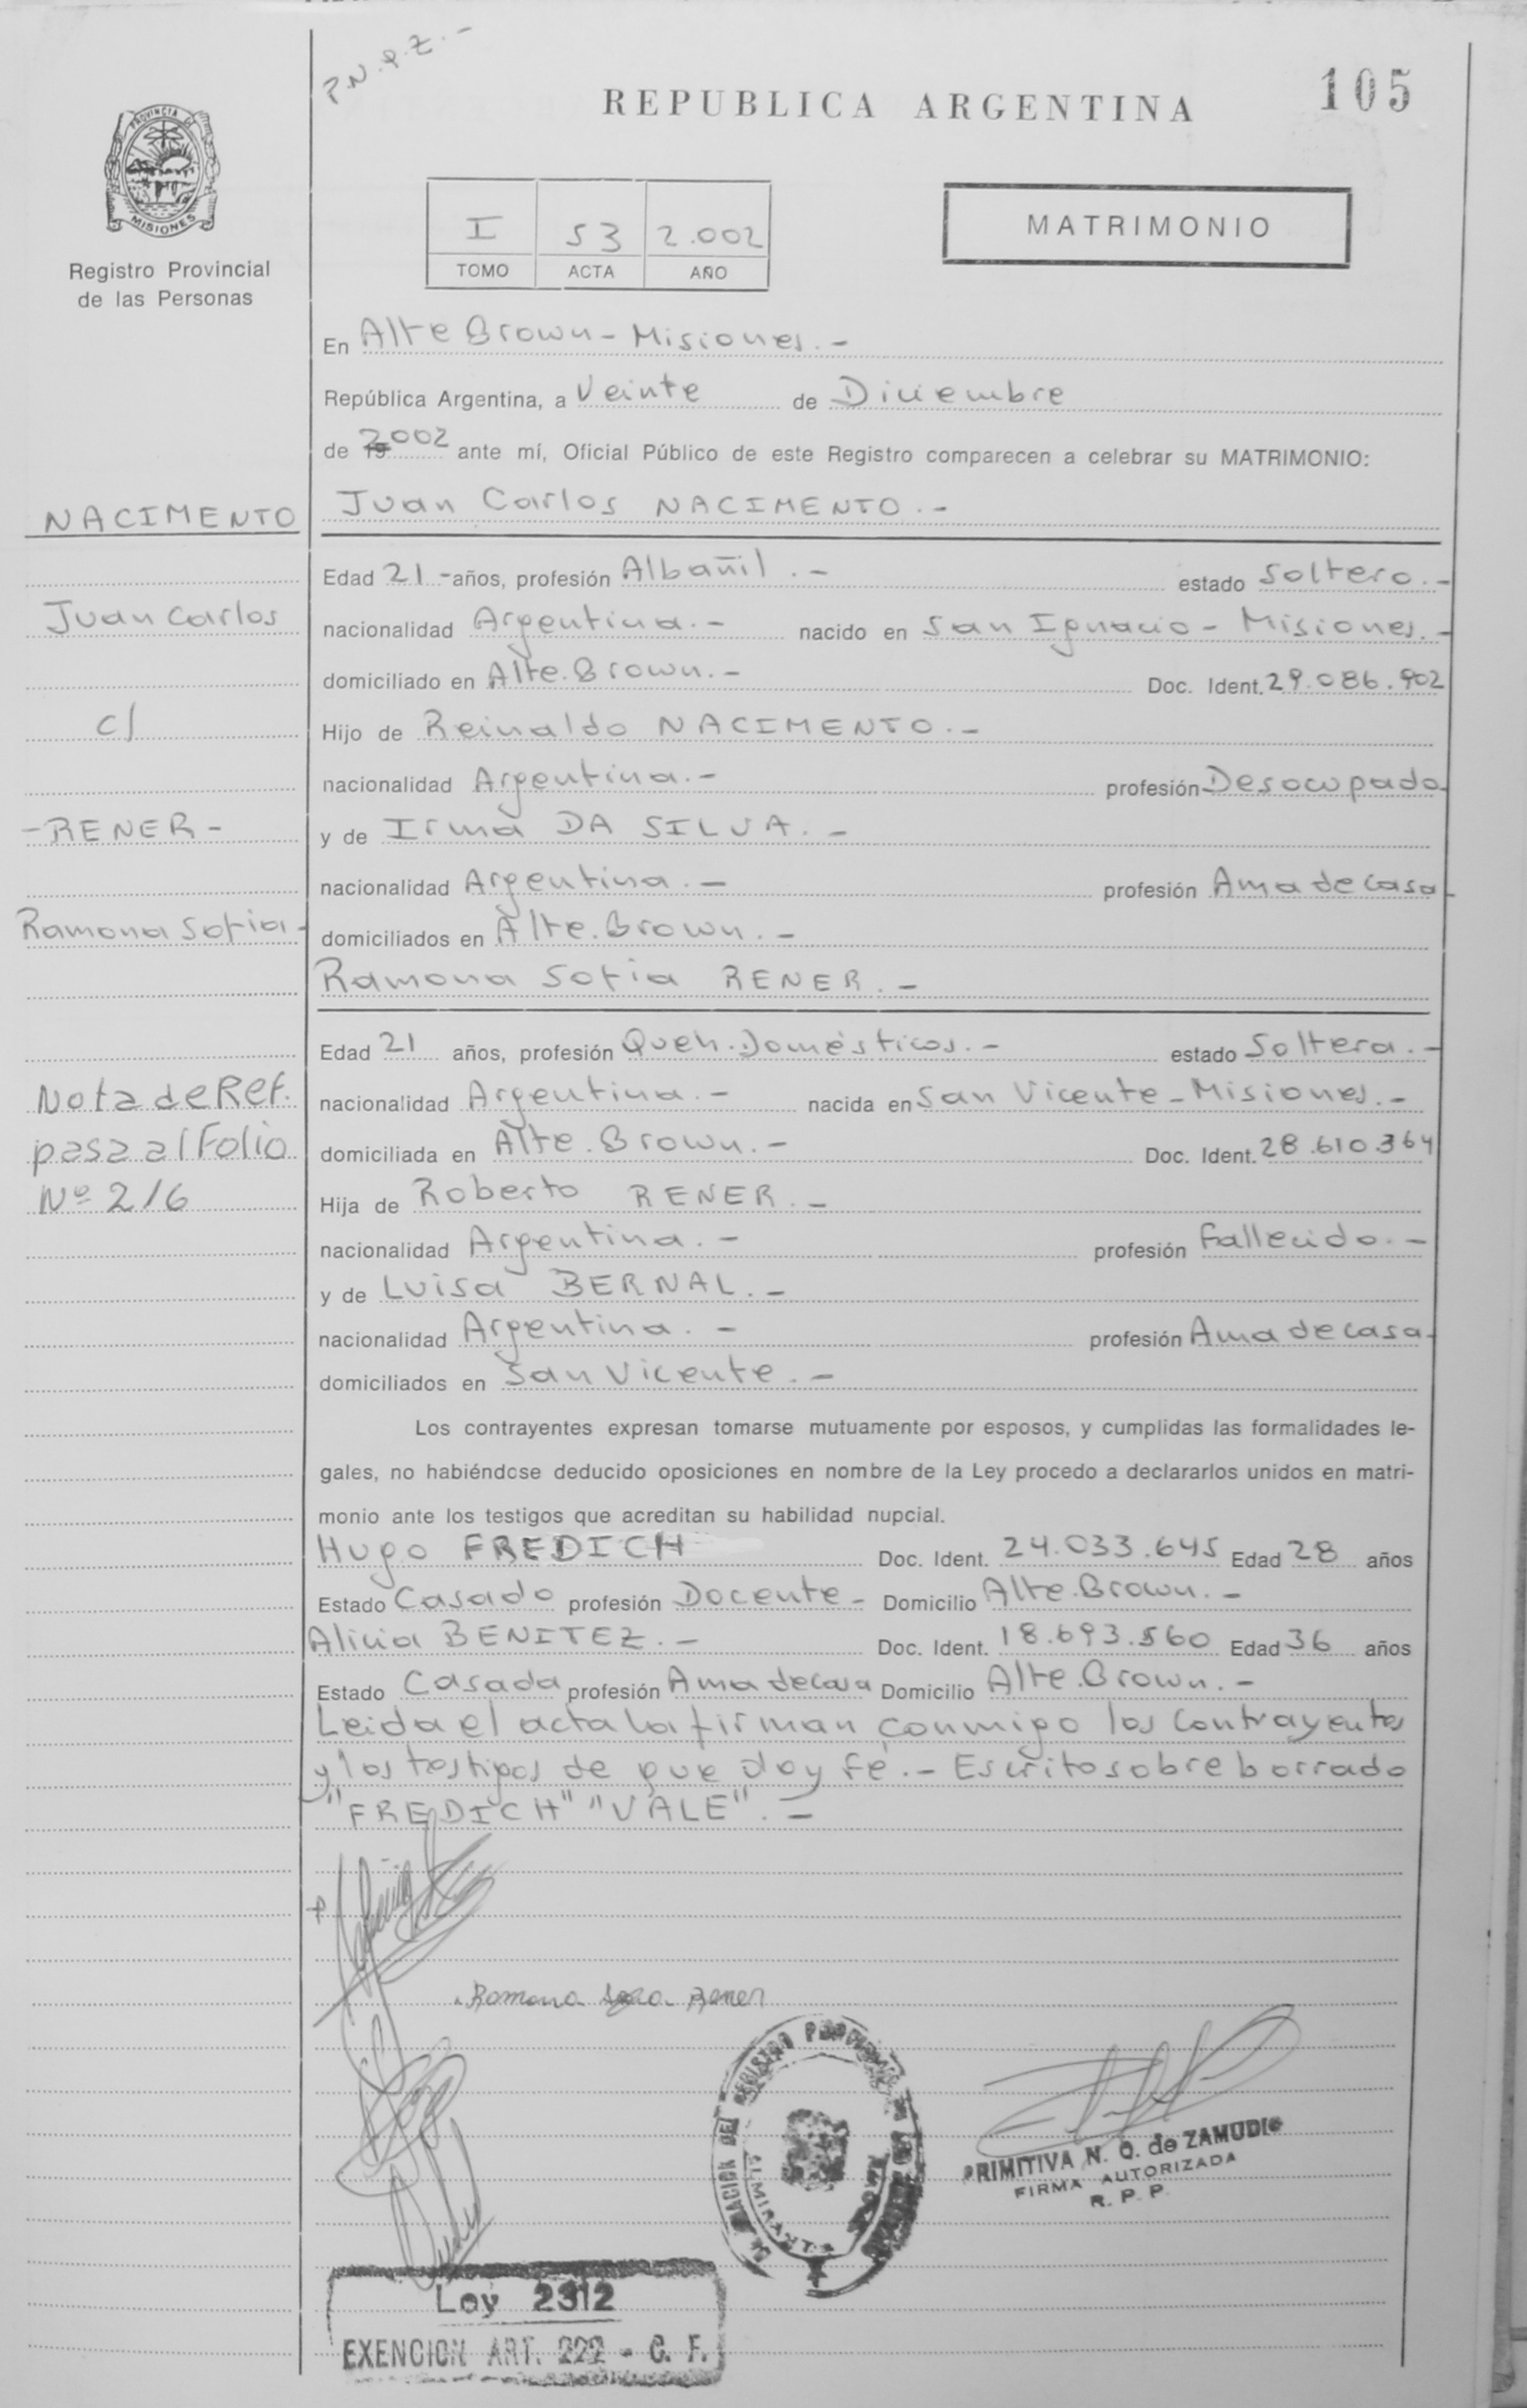 P.N.P.Z.-
REPUBLICA ARGENTINA
105
PROVINCIA DE
MISIONES
Registro Provincial
de las Personas
I 53 2.002
TOMO ACTA AÑO
MATRIMONIO
En Alte Brown - Misiones.-
República Argentina, a Veinte de Diciembre
de 2002 ante mí, Oficial Público de este Registro comparecen a celebrar su MATRIMONIO:
NACIMENTO
Juan Carlos
c/
-RENER-
Ramona Sofia-
Nota de Ref.
pasa al Folio
Nº 216
Juan Carlos NACIMENTO.-
Edad 21 - años, profesión Albañil.- estado Soltero.-
nacionalidad Argentina.- nacido en San Ignacio - Misiones.-
domiciliado en Alte. Brown.- Doc. Ident. 29.086.902
Hijo de Reinaldo NACIMENTO.-
nacionalidad Argentina.- profesión Desocupado
y de Irma DA SILVA.-
nacionalidad Argentina.- profesión Ama de casa
domiciliados en Alte. Brown.-
Ramona Sofia RENER.-
Edad 21 años, profesión Queh. Domésticos.- estado Soltera.-
nacionalidad Argentina.- nacida en San Vicente - Misiones.-
domiciliada en Alte. Brown.- Doc. Ident. 28.610.364
Hija de Roberto RENER.-
nacionalidad Argentina.- profesión Fallecido.-
y de Luisa BERNAL.-
nacionalidad Argentina.- profesión Ama de casa-
domiciliados en San Vicente.-
Los contrayentes expresan tomarse mutuamente por esposos, y cumplidas las formalidades le-
gales, no habiéndose deducido oposiciones en nombre de la Ley procedo a declararlos unidos en matri-
monio ante los testigos que acreditan su habilidad nupcial.
Hugo FREDICH Doc. Ident. 24.033.645 Edad 28 años
Estado Casado profesión Docente - Domicilio Alte. Brown.-
Alicia BENITEZ.- Doc. Ident. 18.693.560 Edad 36 años
Estado Casada profesión Ama de casa Domicilio Alte. Brown.-
Leida el acta la firman conmigo los contrayentes
y los testigos de que doy fé.- Escrito sobre borrado
"FREDICH" "VALE".-
Ramona Sofia Rener
PRIMITIVA N. O. de ZAMUDIO
FIRMA AUTORIZADA
R. P. P.
Ley 2312
EXENCION ART. 222 - C. F.